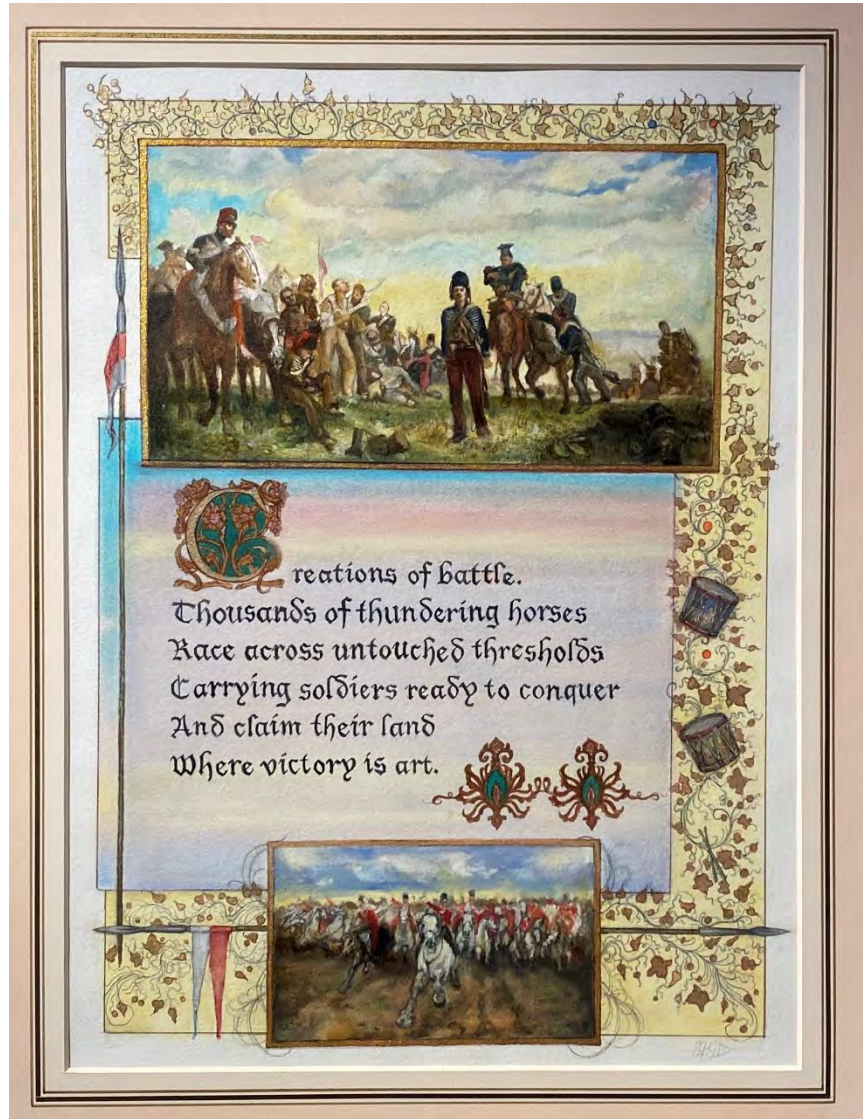 Creations of battle.
Thousands of thundering horses
Race across untouched thresholds
Carrying soldiers ready to conquer
And claim their land
Where victory is art.